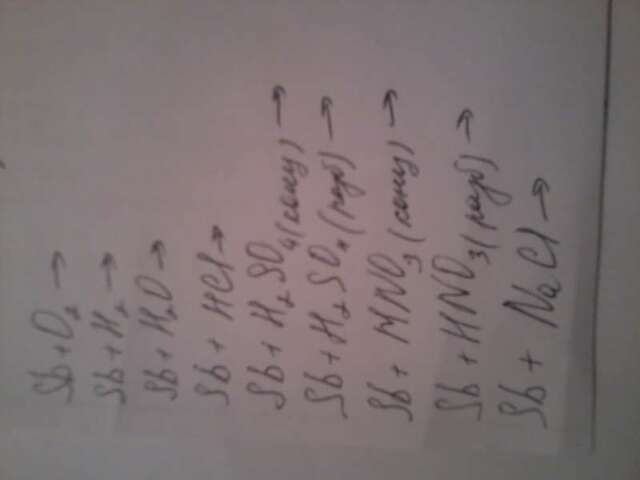 Sb + O₂ →
Sb + H₂ →
Sb + H₂O →
Sb + HCl →
Sb + H₂SO₄ (конц) →
Sb + H₂SO₄ (разб) →
Sb + HNO₃ (конц) →
Sb + HNO₃ (разб) →
Sb + NaCl →